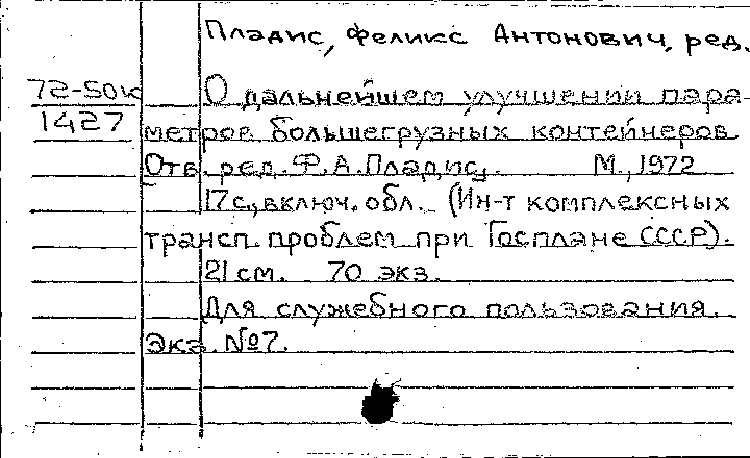 Пладис, Феликс Антонович, ред.
72-50к
1427
О дальнейшем улучшении пара-
метров большегрузных контейнеров.
Отв. ред. Ф.А.Пладис. М., 1972
17с., включ. обл. (Ин-т комплексных
трансп. проблем при Госплане СССР).
21 см. 70 экз.
Для служебного пользования.
Экз. №7.